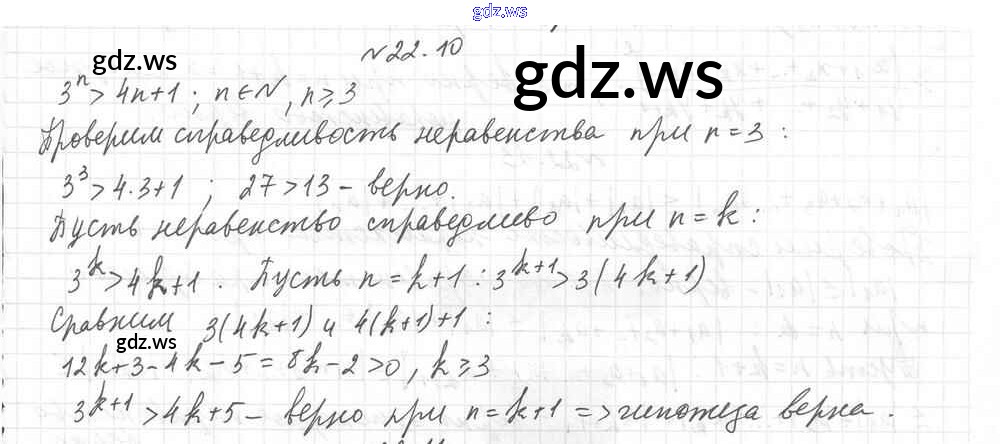 gdz.ws
№22.10
gdz.ws
gdz.ws
3^n > 4n+1 ; n∈N, n≥3
Проверим справедливость неравенства при n=3 :
3^3 > 4·3+1 ; 27 > 13 – верно.
Пусть неравенство справедливо при n=k :
3^k > 4k+1 . Пусть n=k+1 : 3^(k+1) > 3(4k+1)
Сравним 3(4k+1) и 4(k+1)+1 :
gdz.ws
12k+3-4k-5 = 8k-2 > 0 , k≥3
3^(k+1) > 4k+5 – верно при n=k+1 => гипотеза верна .